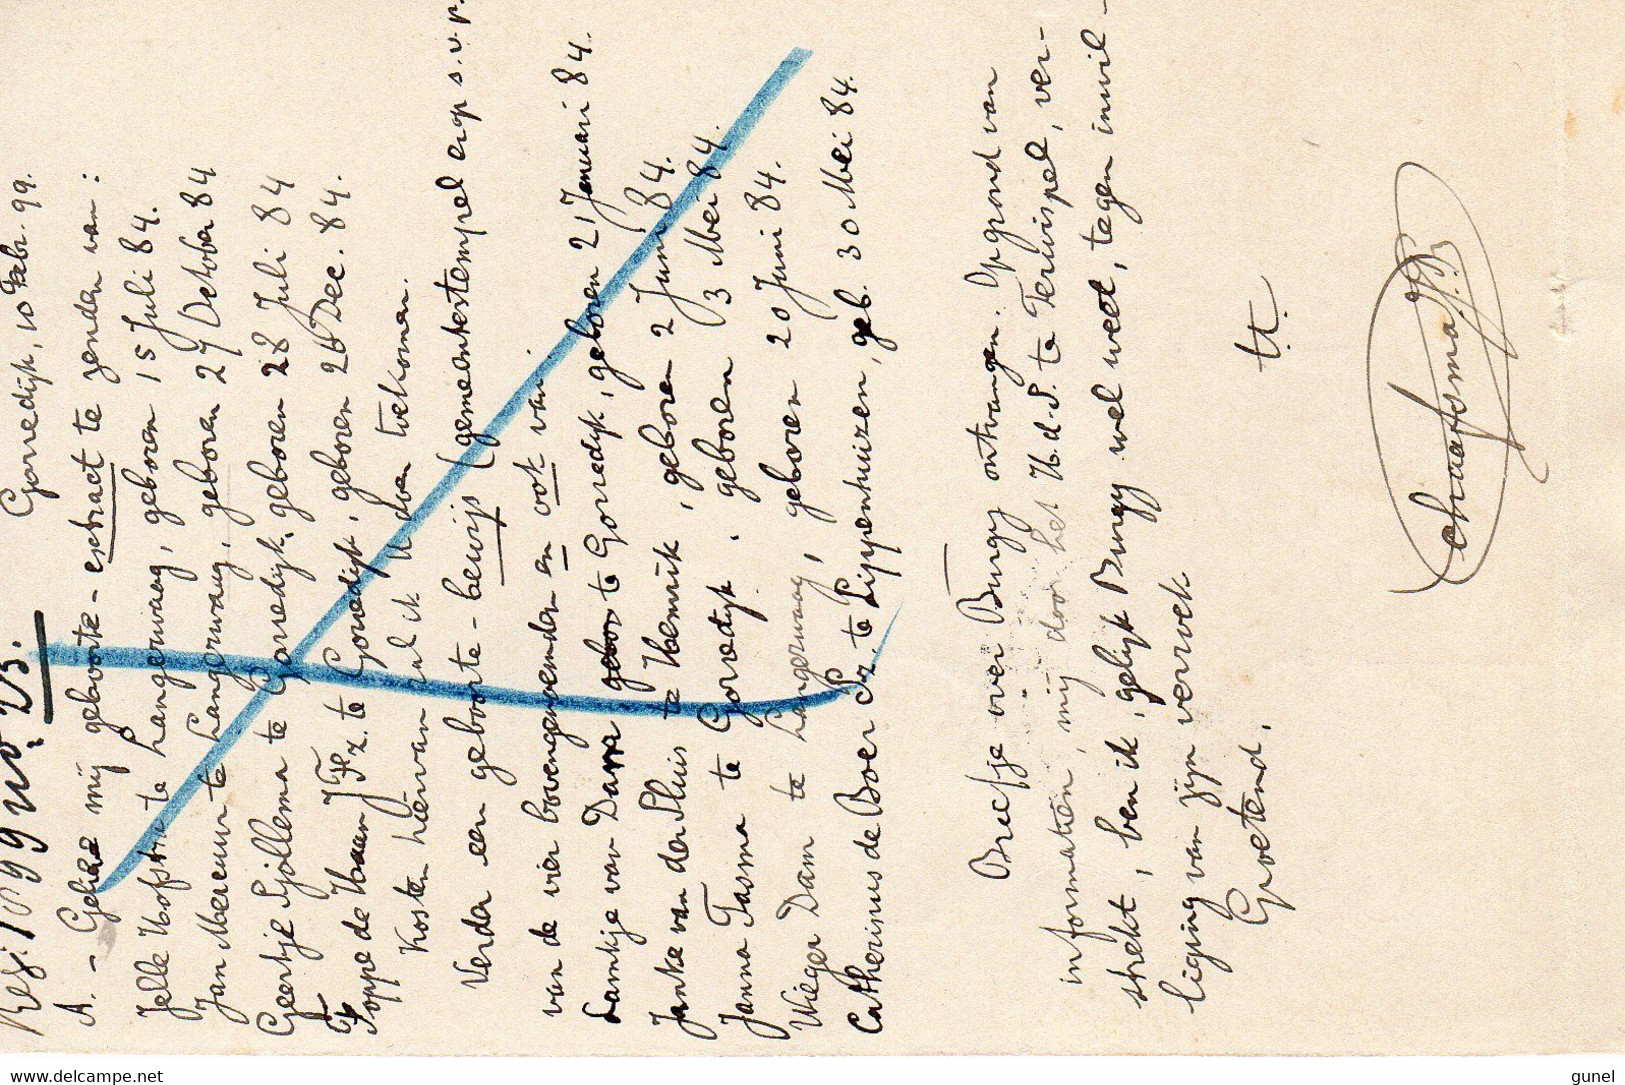 Gorredijk, 10 Febr. 99.
1899 No. 23.
A. - Gelieve mij geboorte-extract te zenden van:
Jelle Hofstra te Langezwaag, geboren 15 Juli 84.
Jan Mercuur te Langezwaag, geboren 27 October 84
Geertje Gjollema te Gorredijk, geboren 28 Juli 84
Foppe de Haan JFz. te Gorredijk, geboren 26 Dec. 84.
Kosten hiervan zal ik U doen toekomen.
Verder een geboorte-bewijs (gemeentestempel erop s.v.p.
van de vier bovengenoemden en ook van:
Lamkje van Dam te Gorredijk, geboren 21 Januari 84.
Janke van der Sluis te Hemrik, geboren 2 Juni 84.
Janna Tasma te Gorredijk, geboren 3 Mei 84.
Wieger Dam te Langezwaag, geboren 20 Juni 84.
Catherinus de Boer Sr. te Lippenhuizen, geb. 30 Mei 84.
Briefje over Bungy ontvangen. Op grond van
informatiën, mij door het H.d.S. te Terwispel, ver-
strekt, ben ik, gelijk Bungy wel weet, tegen inwil-
liging van zijn verzoek.
Groetend,
t.t.